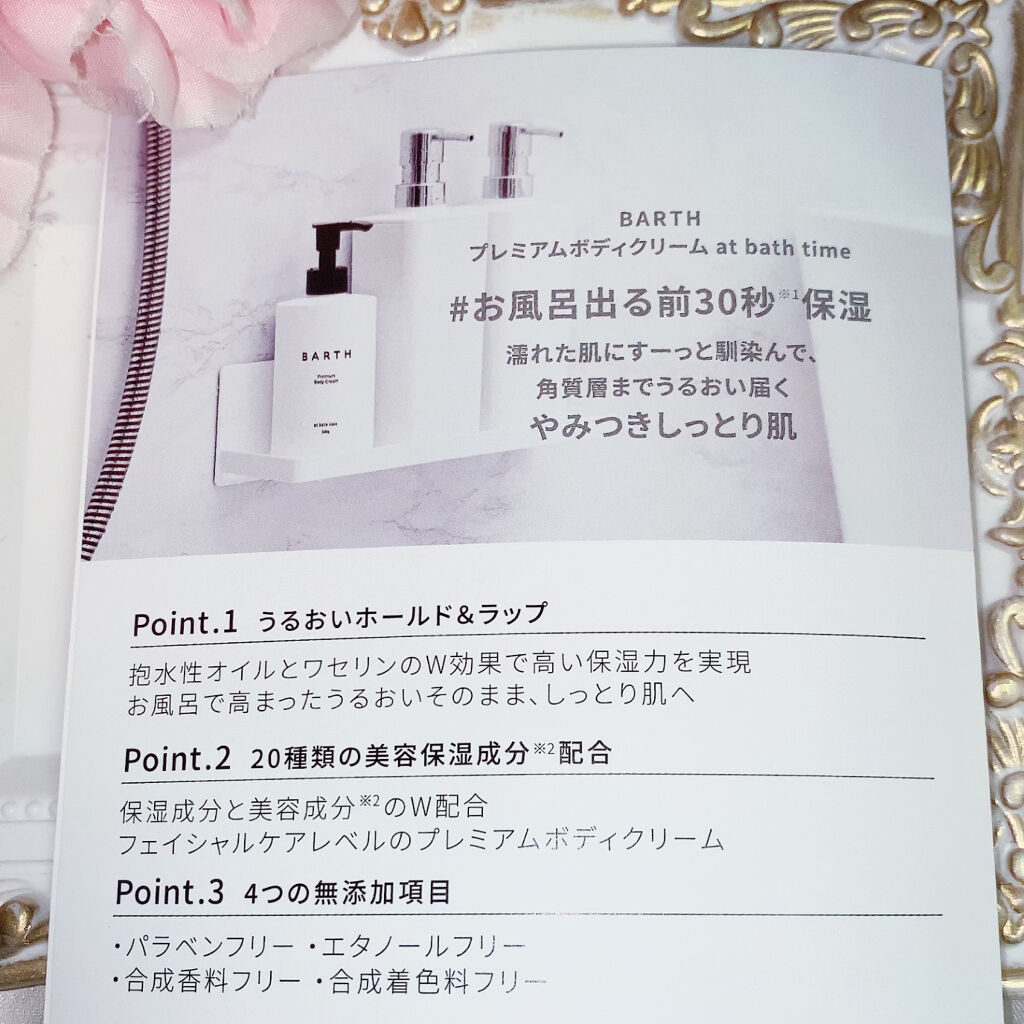 BARTH
プレミアムボディクリーム at bath time
#お風呂出る前30秒※1保湿
濡れた肌にすーっと馴染んで、
角質層までうるおい届く
やみつきしっとり肌
BARTH
Premium
Body Cream
at bath time
Point.1 うるおいホールド&ラップ
抱水性オイルとワセリンのW効果で高い保湿力を実現
お風呂で高まったうるおいそのまま、しっとり肌へ
Point.2 20種類の美容保湿成分※2配合
保湿成分と美容成分※2のW配合
フェイシャルケアレベルのプレミアムボディクリーム
Point.3 4つの無添加項目
・パラベンフリー ・エタノールフリー
・合成香料フリー ・合成着色料フリー